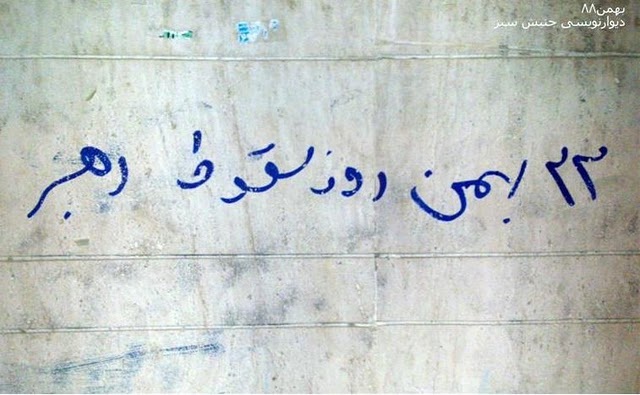 بهمن۸۸
دیوارنویسی جنبش سبز
۲۲ بهمن روز سقوط رهبر